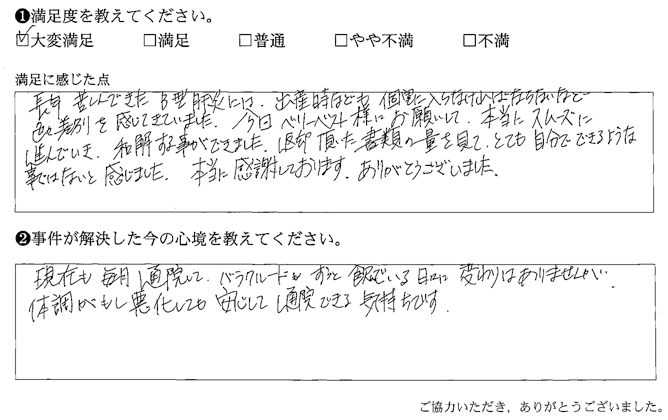 ❶満足度を教えてください。
☑大変満足 □満足 □普通 □やや不満 □不満
満足に感じた点
長年 苦しんできた B型肝炎には、出産時なども 個室に入らなければならないなど
色々差別を感じてきていました。今回 ベリーベスト様にお願いして、本当にスムーズに
進んでいき、和解する事ができました。返却頂いた書類の量を見て、とても自分でできるような
事ではないと感じました。本当に感謝しております。ありがとうございました。
❷事件が解決した今の心境を教えてください。
現在も 毎月 通院して、バラクルードを ずっと 飲んでいる 日々に 変わりはありませんが、
体調がもし悪化しても 安心して 通院できる 気持ちです。
ご協力いただき、ありがとうございました。